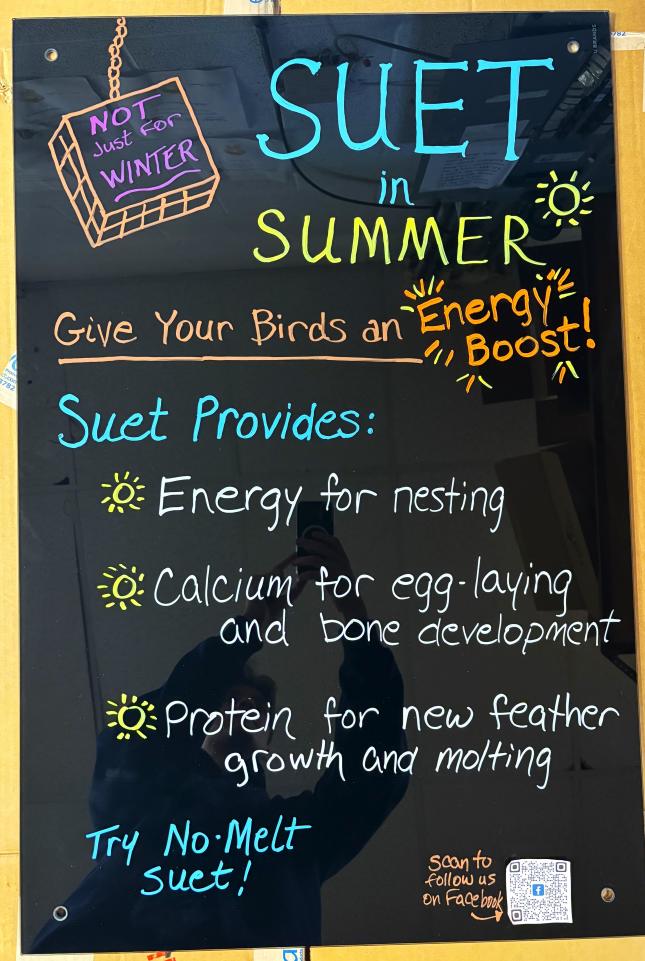 NOT
Just For
WINTER
SUET
in
SUMMER
Give Your Birds an Energy
Boost!
Suet Provides:
Energy for nesting
Calcium for egg-laying
and bone development
Protein for new feather
growth and molting
Try No-Melt
Suet!
Scan to
follow us
on Facebook